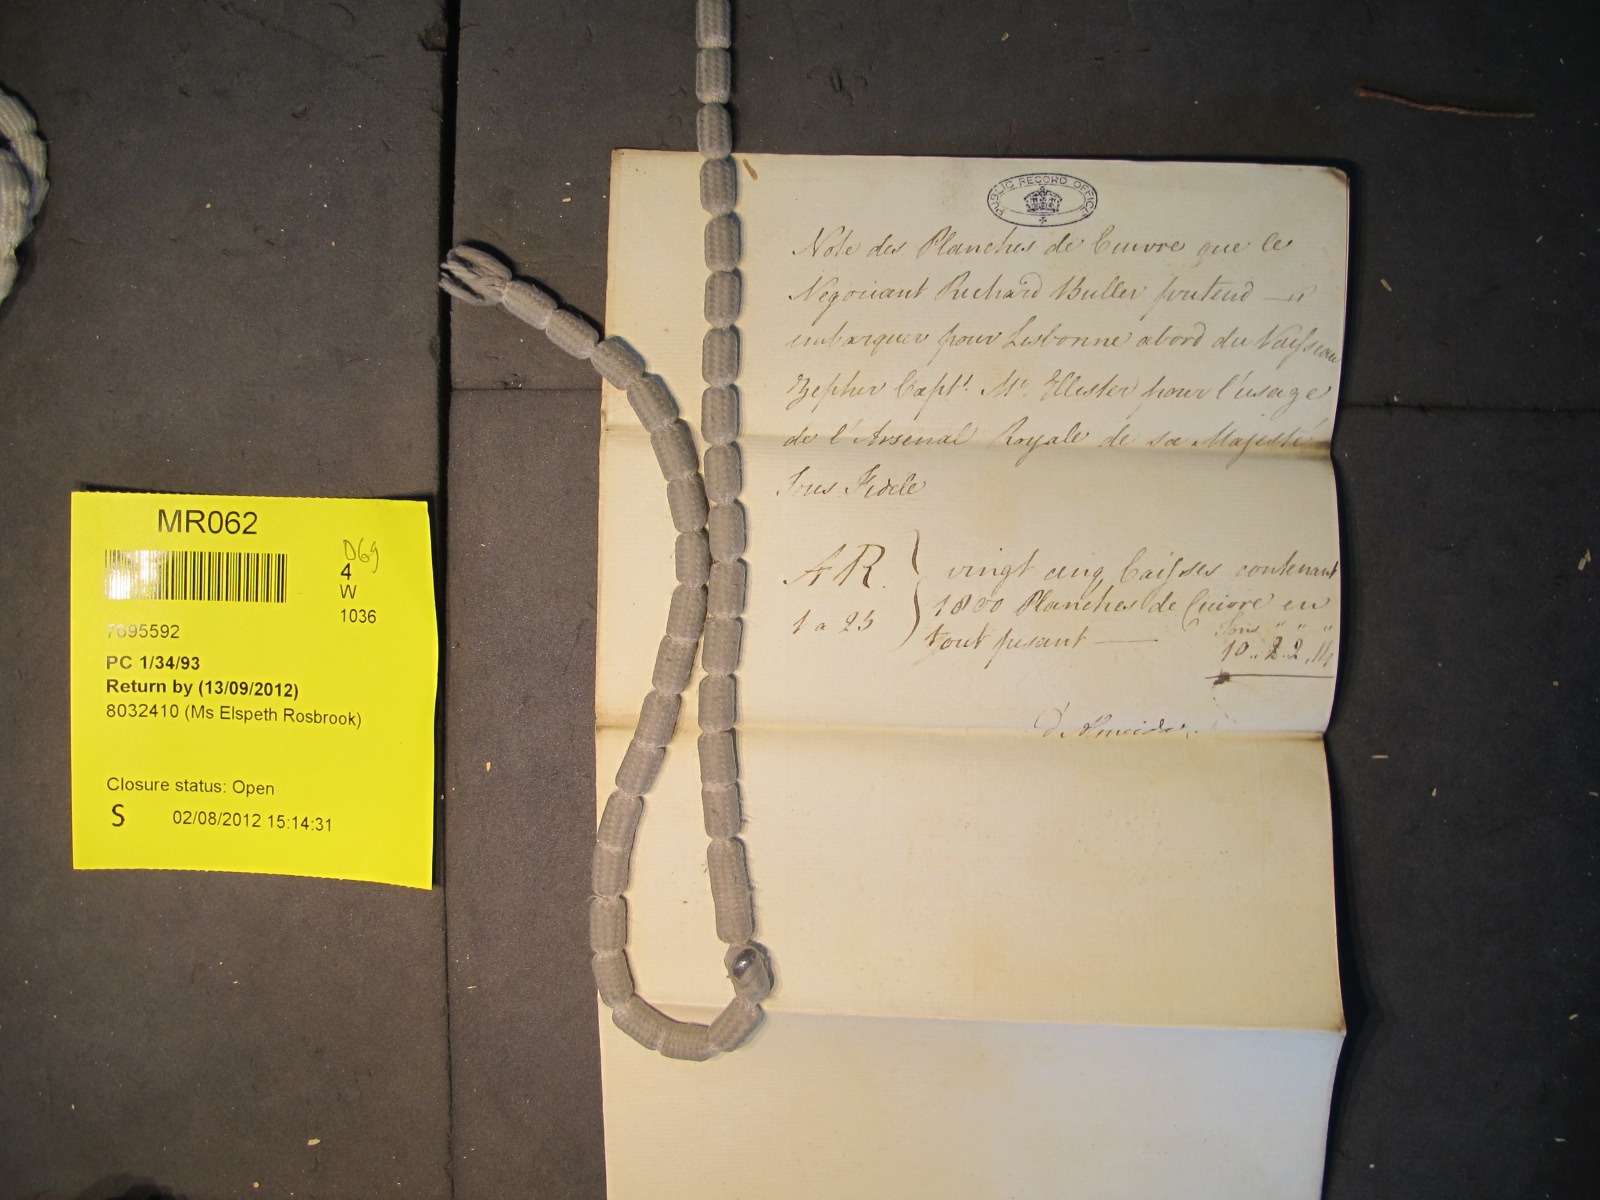 PUBLIC RECORD OFFICE
Note des Planches de Cuivre que le
Negociant Richard Buller pretend
embarquer pour Lisbonne abord du Vaisseau
Zephir Capt. Mr. Ellister pour l'usage
de l'Arsenal Royale de sa Majesté
Fidele
AR. vingt cinq Caisses contenant
1800 Planches de Cuivre en
1 a 25 tout pesant
Tons " " "
10..2.2.14
D'Almeida
MR062
D69
4
W
1036
7695592
PC 1/34/93
Return by (13/09/2012)
8032410 (Ms Elspeth Rosbrook)
Closure status: Open
S 02/08/2012 15:14:31